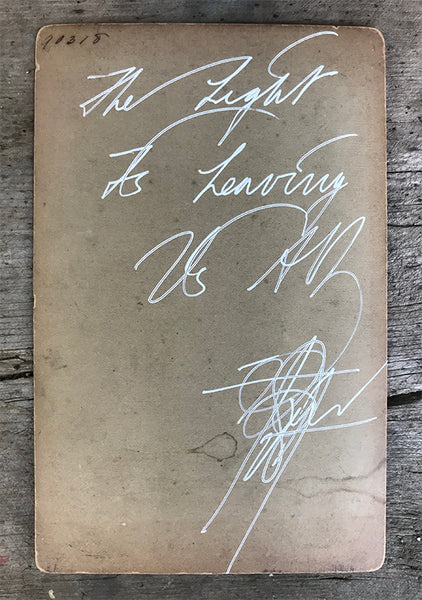 20318
The Light
Is Leaving
Us All